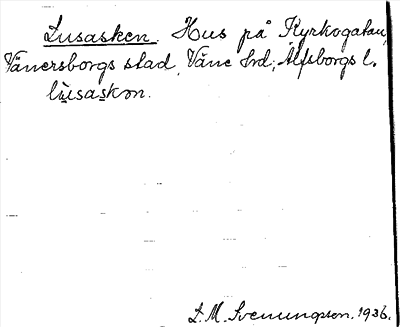 Lusasken. Hus på Kyrkogatan,
Vänersborgs stad, Väne hrd, Älfsborgs l.
lùsaskon.
D. M. Svenungsson. 1936.